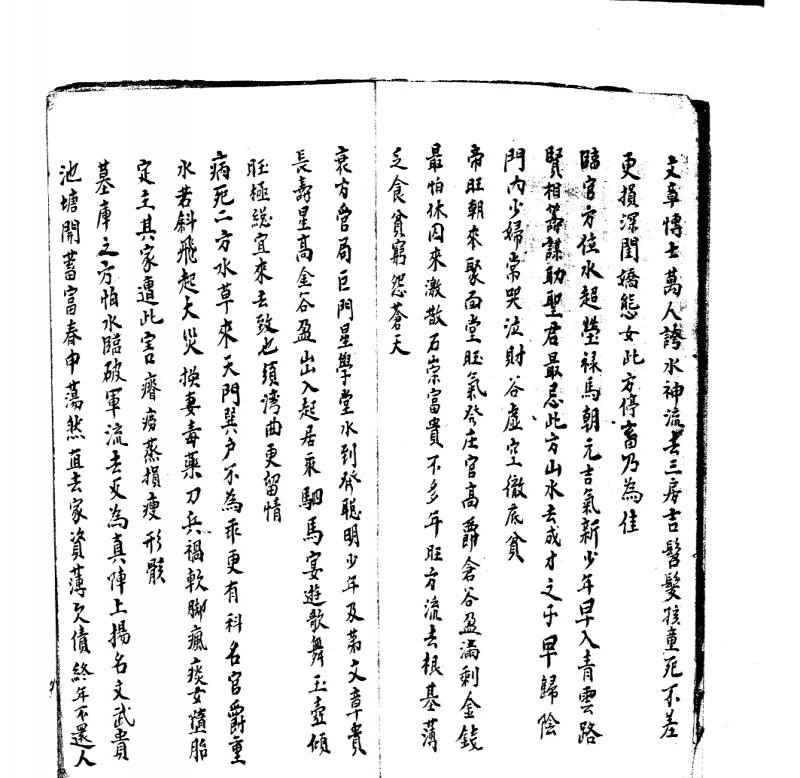 文章博士萬人誇水神流去三房吉髫髮孩童死不差
更損深閨嬌態女此方停畜乃為佳
臨官方位水超瑩祿馬朝元吉氣新少年早入青雲路
賢相籌謀助聖君最忌此方山水去成才之子早歸陰
門內少婦常哭泣財谷虛空徹底貧
帝旺朝來聚面堂旺氣發庄官高爵倉谷盈滿剩金錢
最怕休囚來激散石崇富貴不多年旺方流去根基薄
乏食貧窮怨蒼天
衰方官局巨門星學堂水到發聰明少年及第文章貴
長壽星高金谷盈出入起居乘駟馬宴遊歌舞玉壺傾
旺極總宜來去致也須湾曲更留情
病死二方水草來天門巽户不為乖更有科名官爵重
水若斜飛起大災換妻毒藥刀兵禍軟脚瘋痰女墮胎
定主其家遭此害癆瘵蒸損瘦形骸
墓庫之方怕水臨破軍流去反為真陣上揚名文武貴
池塘開蓄富春申蕩然直去家資薄欠債終年不還人